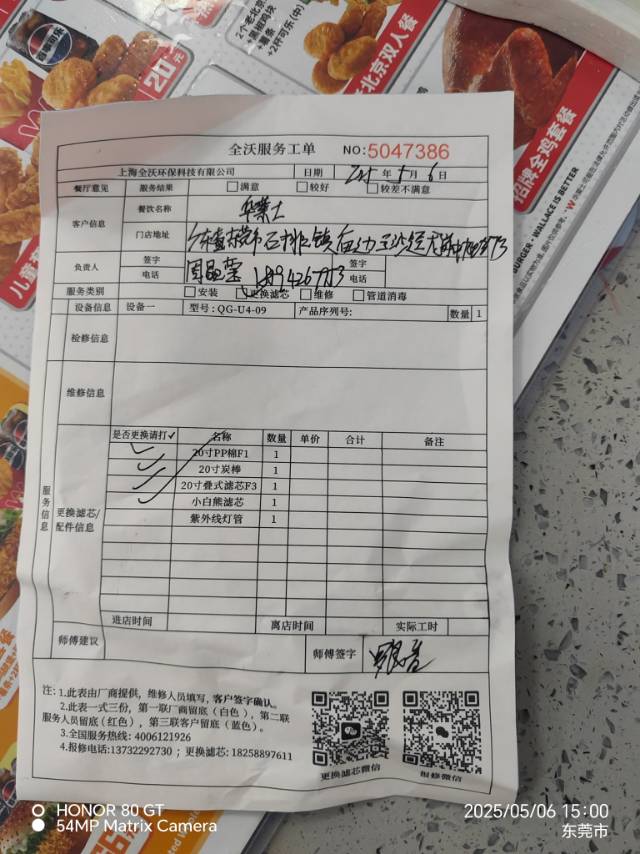 2个老北京
+黑椒鸡块
+薯条
+2杯可乐(中)
20元
北京双人餐
招牌全鸡套餐
BURGER · WALLACE IS BETTER
全沃服务工单 NO:5047386
上海全沃环保科技有限公司 日期 年 5月 6日
餐厅意见 服务结果 满意 较好 较差不满意
客户信息 餐饮名称 华莱士
门店地址
负责人 签字 签字
电话 电话
服务类别 安装 更换滤芯 维修 管道消毒
设备信息 设备一 型号:QG-U4-09 产品序列号: 数量 1
检修信息
维修信息
服务信息
更换滤芯/
配件信息
是否更换请打✓ 名称 数量 单价 合计 备注
✓ 20寸PP棉F1 1
✓ 20寸炭棒 1
✓ 20寸叠式滤芯F3 1
✓ 小白熊滤芯 1
紫外线灯管 1
进店时间 离店时间 实际工时
师傅建议 师傅签字
注: 1.此表由厂商提供, 维修人员填写, 客户签字确认。
2.此表一式三份, 第一联厂商留底(白色), 第二联
服务人员留底(红色), 第三联客户留底(蓝色)。
3.全国服务热线: 4006121926
4.报修电话:13732292730 ; 更换滤芯: 18258897611
更换滤芯微信 报修微信
HONOR 80 GT
54MP Matrix Camera
2025/05/06 15:00
东莞市